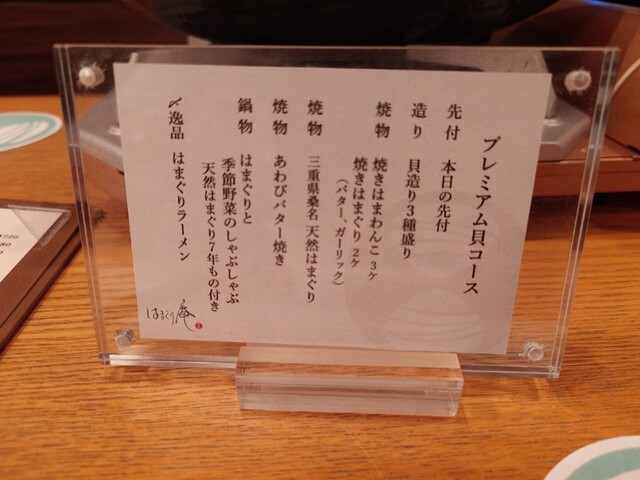 プレミアム貝コース
先付 本日の先付
造り 貝造り3種盛り
焼物 焼きはまわんこ 3ヶ
焼きはまぐり 2ヶ
(バター、ガーリック)
焼物 三重県桑名 天然はまぐり
焼物 あわびバター焼き
鍋物 はまぐりと
季節野菜のしゃぶしゃぶ
天然はまぐり7年もの付き
〆逸品 はまぐりラーメン
はまぐり庵